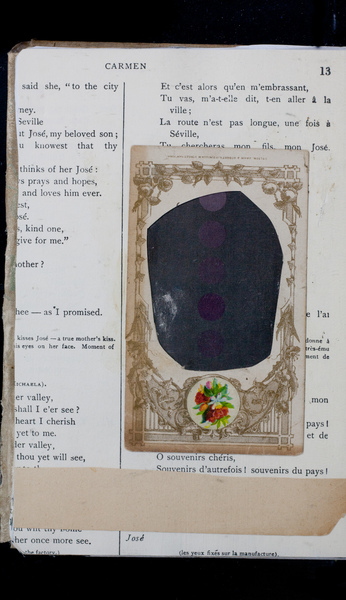 CARMEN
13
said she, "to the city
ney.
Seville
ut José, my beloved son;
u knowest that thy
thinks of her José:
s prays and hopes,
and loves him ever.
est,
sé.
s, kind one,
give for me."
nother?
hee — as I promised.
kisses José — a true mother's kiss.
is eyes on her face. Moment of
er valley,
shall I e'er see?
heart I cherish
yet to me.
ler valley,
thou yet will see,
her once more see.
che factory.)
Et c'est alors qu'en m'embrassant,
Tu vas, m'a-t-elle dit, t-en aller à la
ville;
La route n'est pas longue, une fois à
Séville,
Tu chercheras mon fils, mon José.
e l'ai
donne à
très-ému
ment de
mon
pays!
et de
O souvenirs chéris,
Souvenirs d'autrefois! souvenirs du pays!
José
(les yeux fixés sur la manufacture).